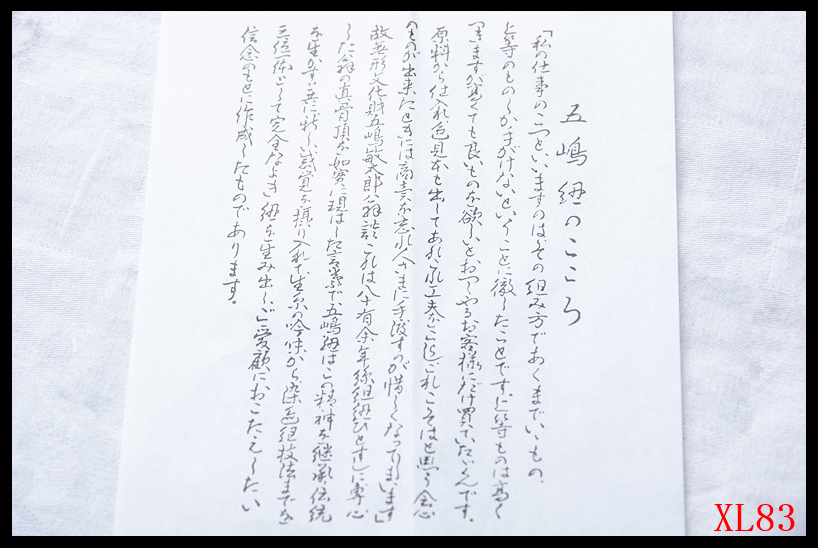 五嶋紐のこころ
「私の仕事のこつといいますのは、その組み方であくまでいいもの、
上等のものしか手がけないということに徹したことです。上等ものは高く
つきますが、高くても良いものを欲しいとおっしゃるお客様にだけ買っていただくんです。
原料から仕入れ色見本も出してあれこれ工夫をこらしこれこそはと思う会心
のものが出来たときには商売を忘れ人さまに手渡すのが惜しくなってしまいます」
故無形文化財五嶋敏太郎翁談、これは八十有余年絲組紐ひとすじに専心
した翁の真骨頂を如実に現はした言葉で、五嶋紐はこの精神を継承、伝統
を生かす共に新しい感覚を摂り入れて生糸の吟味から染色組技法までを
三位一体として完全なよき紐を生み出し、ご愛顧におこたえしたい
信念のもとに作成したものであります。
XL83